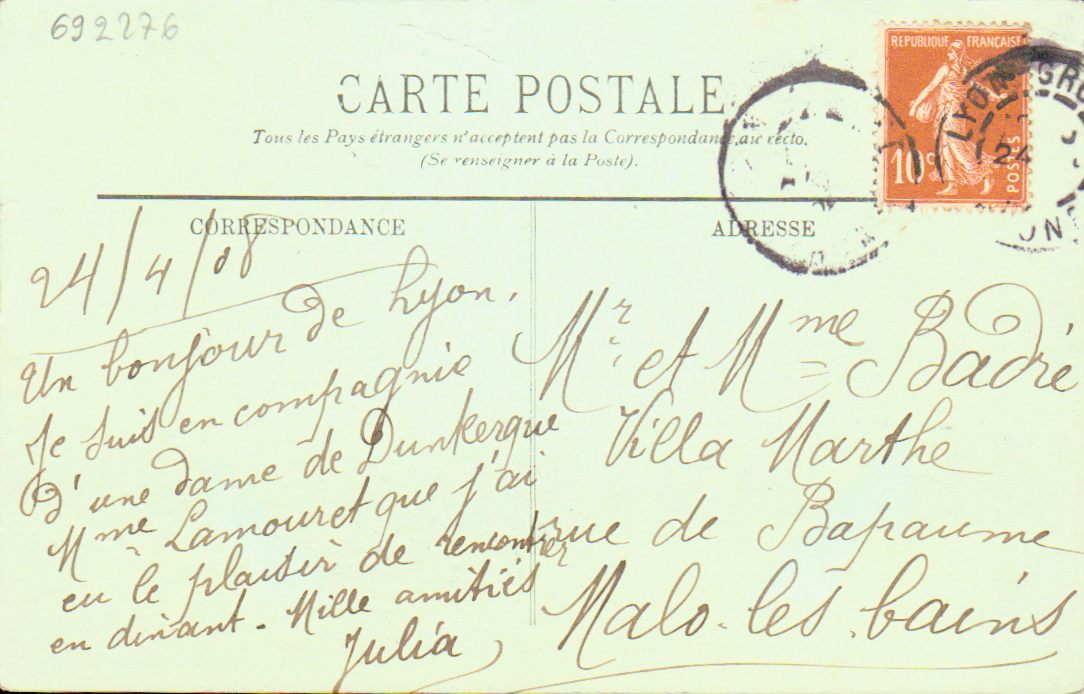 692276
CARTE POSTALE
Tous les Pays étrangers n'acceptent pas la Correspondance au recto.
(Se renseigner à la Poste).
REPUBLIQUE FRANÇAISE
10c
POSTES
LYON
24
CORRESPONDANCE
24/4/08
Un bonjour de Lyon.
Je suis en compagnie
d'une dame de Dunkerque
Mme Lamouret que j'ai
eu le plaisir de rencontrer
en dinant - Mille amitiés
Julia
ADRESSE
Mr. et Mme Badré
Villa Marthe
rue de Bapaume
Malo-les-bains